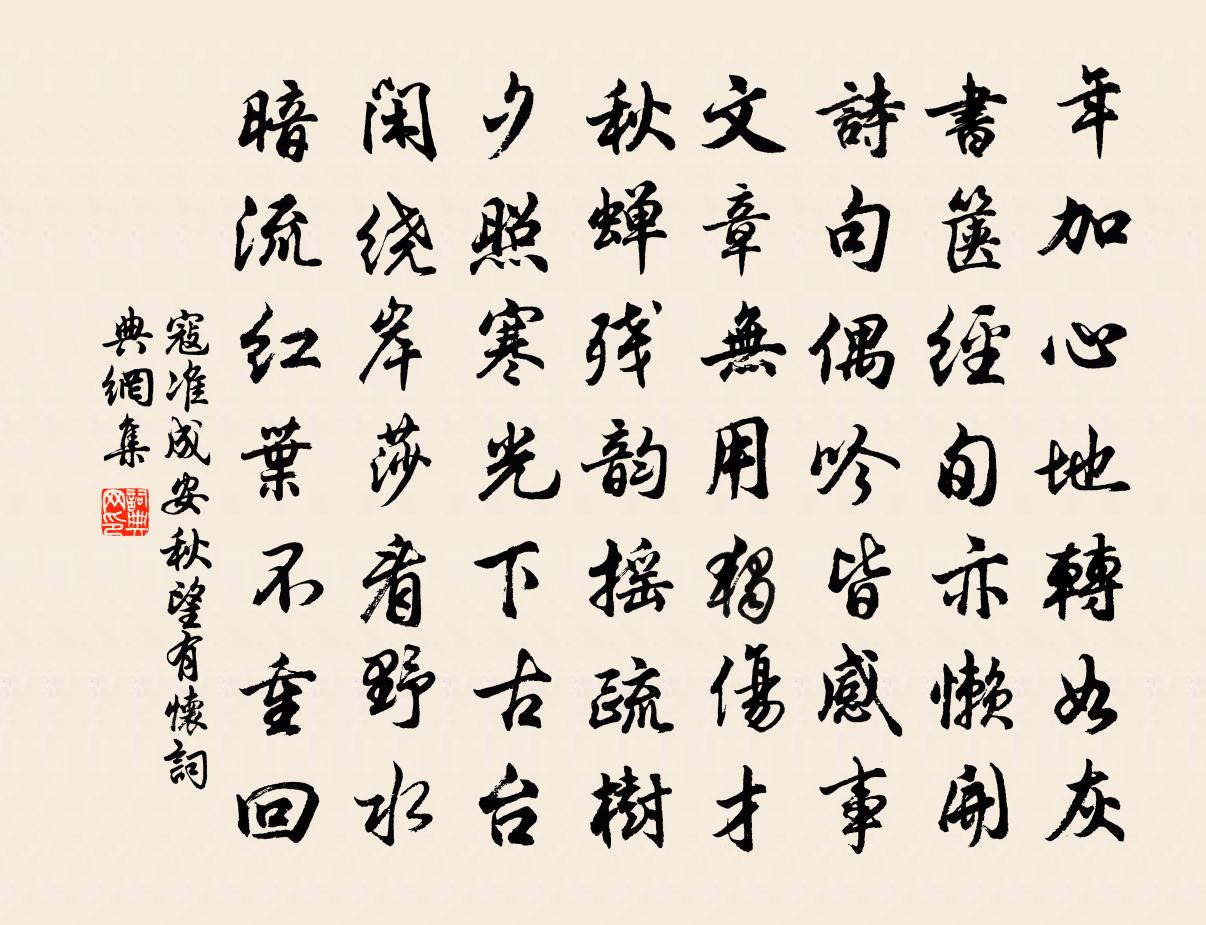 年加心地轉如灰
書篋經旬亦懒開
詩句偶吟皆感事
文章無用猶傷才
秋蝉残韵摇疏樹
夕照寒光下古台
闲绕岸莎看野水
暗流红葉不重回
寇准成安秋望有懷詞
典網集
詞典
网印